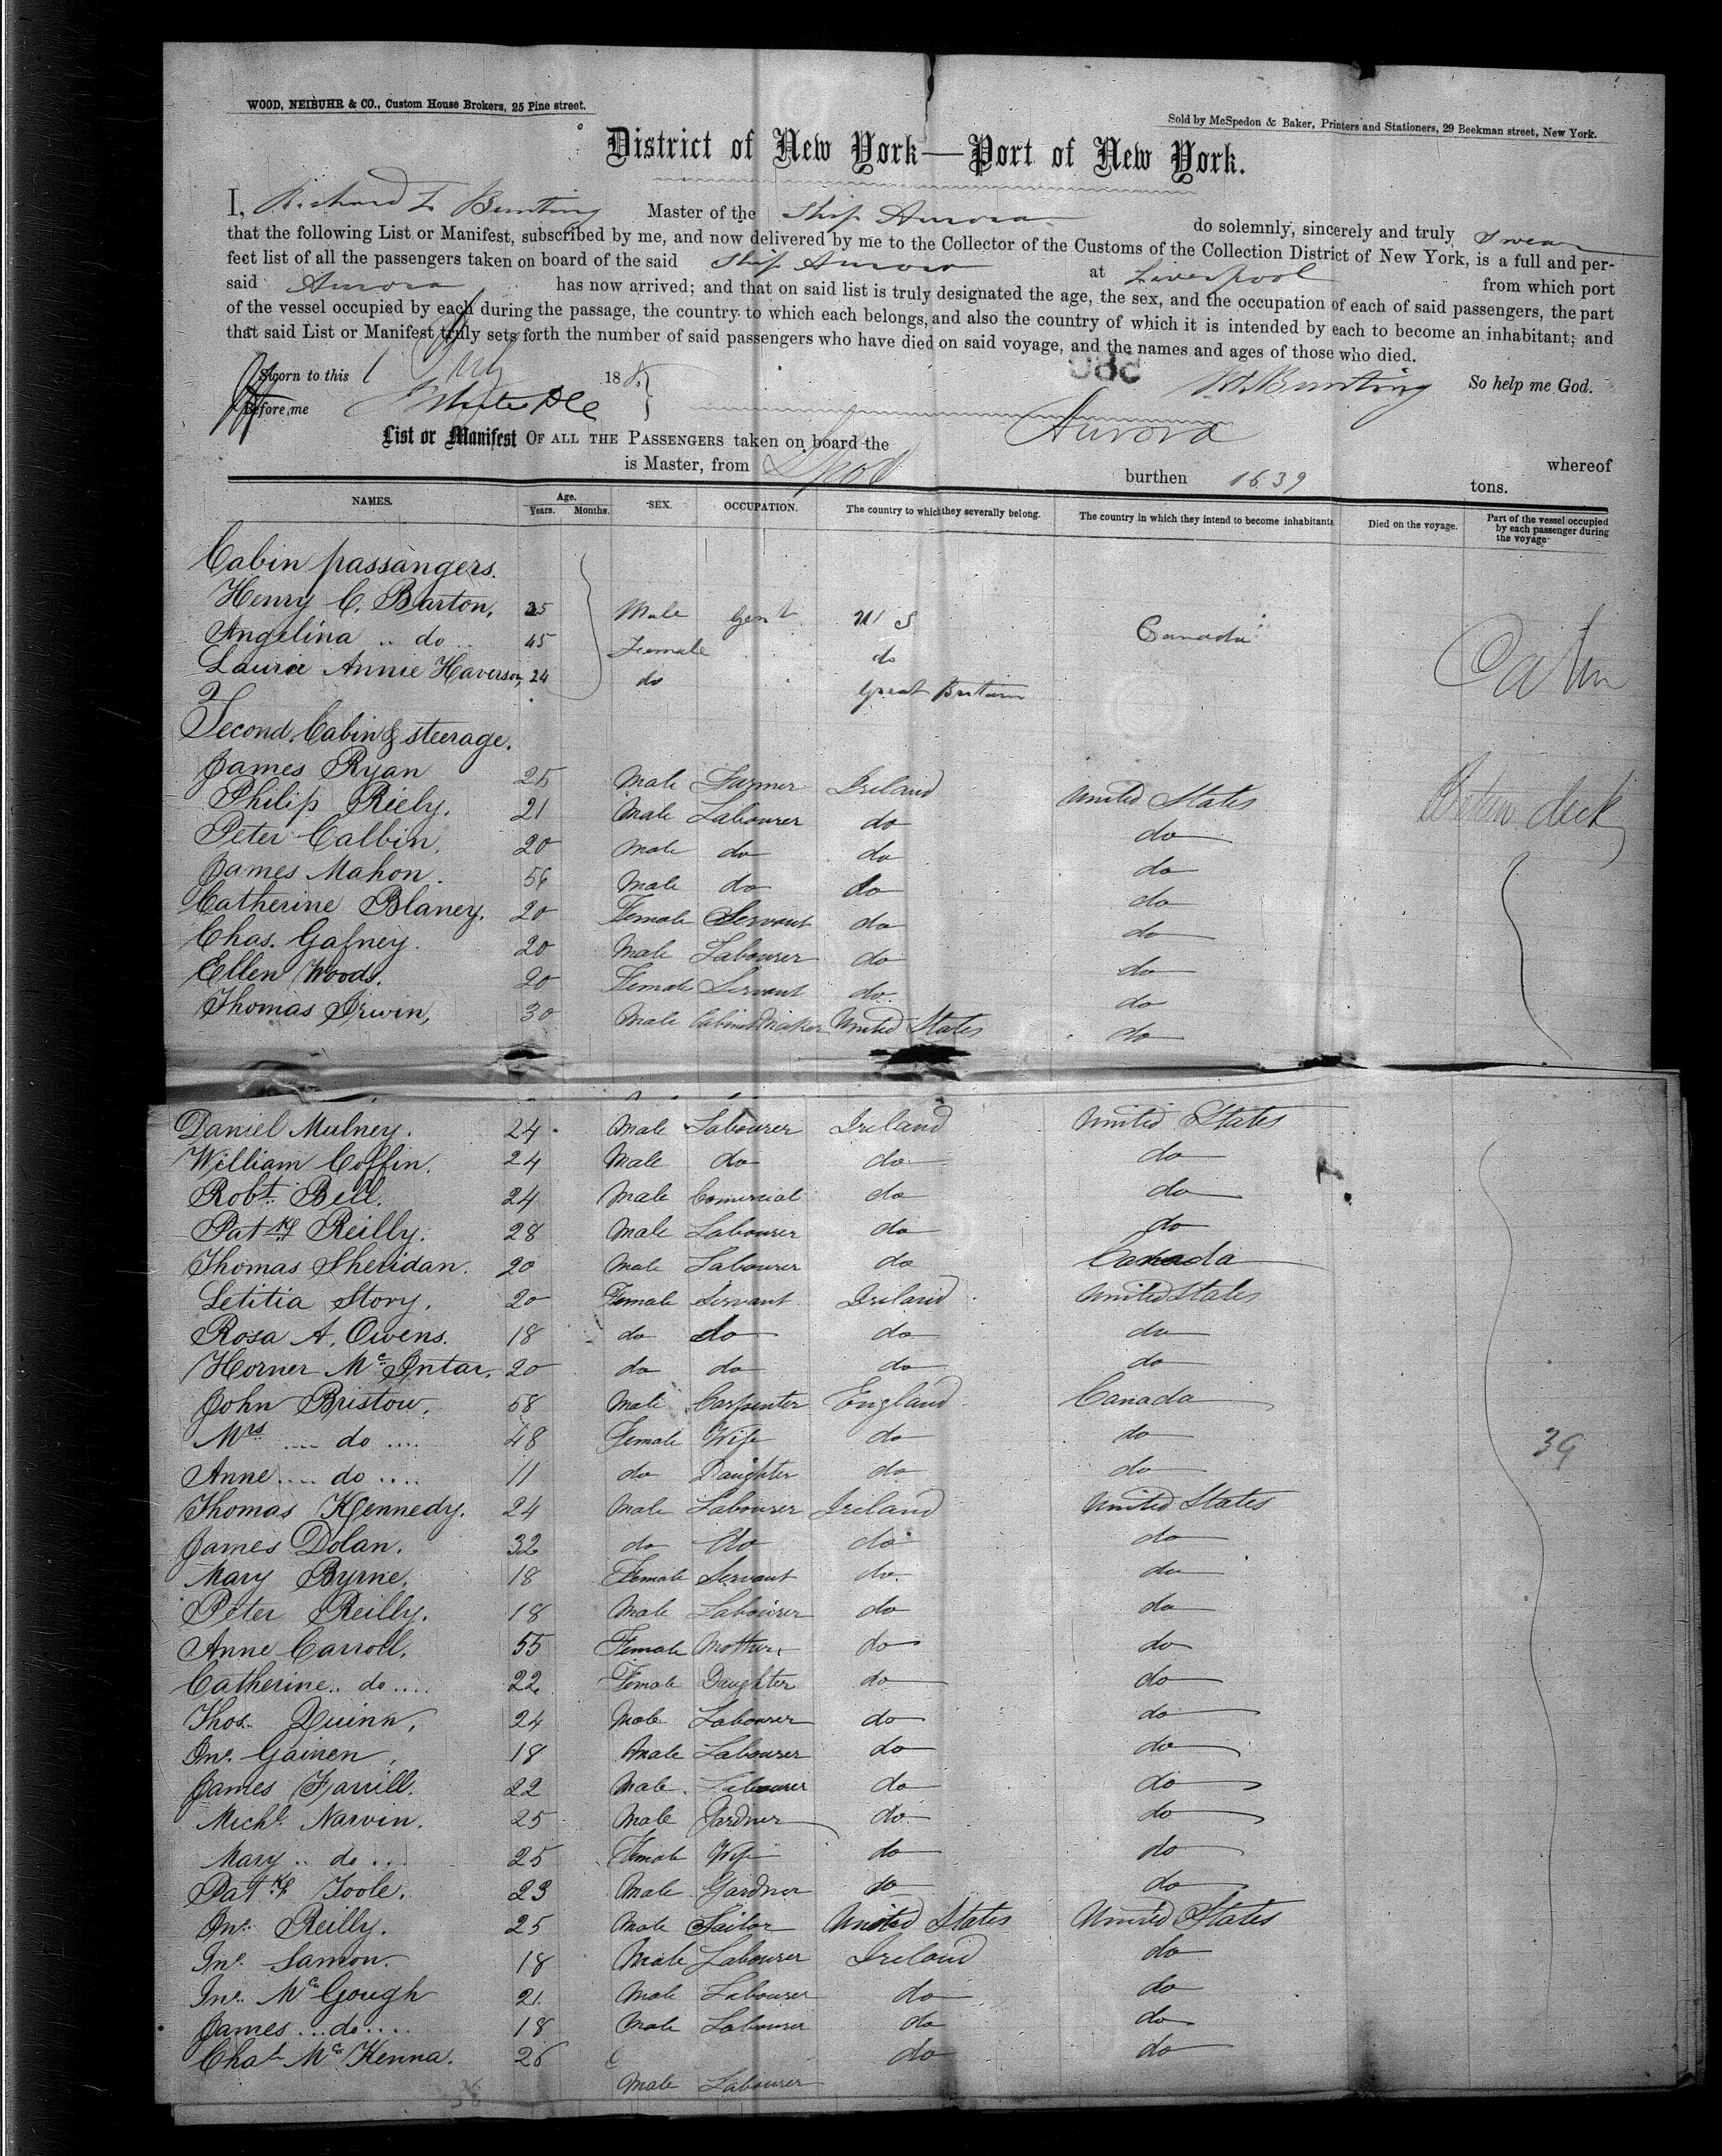 WOOD, NEIBUHR & CO., Custom House Brokers, 25 Pine street.
Sold by McSpedon & Baker, Printers and Stationers, 29 Beekman street, New York.
District of New York—Port of New York.
I, Richard Bunting Master of the Ship Aurora do solemnly, sincerely and truly swear
that the following List or Manifest, subscribed by me, and now delivered by me to the Collector of the Customs of the Collection District of New York, is a full and per-
fect list of all the passengers taken on board of the said Ship Aurora at Liverpool from which port
said Aurora has now arrived; and that on said list is truly designated the age, the sex, and the occupation of each of said passengers, the part
of the vessel occupied by each during the passage, the country to which each belongs, and also the country of which it is intended by each to become an inhabitant; and
that said List or Manifest truly sets forth the number of said passengers who have died on said voyage, and the names and ages of those who died.
Sworn to this 1 July 18 So help me God.
Before me Bunting
List or Manifest OF ALL THE PASSENGERS taken on board the Aurora whereof
is Master, from Lpool burthen 1639 tons.
NAMES. Age. Years. Months. SEX. OCCUPATION. The country to which they severally belong. The country in which they intend to become inhabitants. Died on the voyage. Part of the vessel occupied by each passenger during the voyage
Cabin passangers.
Henry C. Barton, Male Gent U S Canada
Angelina .. do .. 45 Female do
Laura Annie Haverson, 24 do Great Britain Cabin
Second Cabin & steerage.
James Ryan 25 Male Farmer Ireland United States
Philip Riely. 21 Male Labourer do do deck
Peter Calbin. 20 Male do do do
James Mahon. 56 Male do do do
Catherine Blaney. 20 Female Servant do do
Chas. Gafney. 20 Male Labourer do do
Ellen Woods. 20 Female Servant do do
Thomas Irwin, 30 Male Cabinet Maker United States do
Daniel Mulney. 24 Male Labourer Ireland United States
William Coffin. 24 Male do do do
Robt. Bell. 24 Male Comercial do do
Patk Reilly. 28 Male Labourer do do
Thomas Sheridan. 20 Male Labourer do Canada
Letitia Story. 20 Female Servant Ireland United States
Rosa A. Owens. 18 do do do do
Horner McIntar. 20 do do do do
John Bristow. 58 Male Carpenter England Canada
Mrs .... do .... 48 Female Wife do do 39
Anne .... do .... 11 do Daughter do do
Thomas Kennedy. 24 Male Labourer Ireland United States
James Dolan. 32 do do do do
Mary Byrne. 18 Female Servant do do
Peter Reilly. 18 Male Labourer do do
Anne Carroll. 55 Female Mother do do
Catherine .. do .... 22 Female Daughter do do
Thos. Quinn, 24 Male Labourer do do
Jno. Gainen, 18 Male Labourer do do
James Farrill. 22 Male Labourer do do
Michl. Narvin. 25 Male Gardner do do
Mary .. do ... 25 Female Wife do do
Patk Toole. 23 Male Gardner do do
Jno. Reilly. 25 Male Sailor United States United States
Jno. Samon. 18 Male Labourer Ireland do
Jno. McGough 21 Male Labourer do do
James ... do .... 18 Male Labourer do do
Chas McKenna. 26 do do
Male Labourer